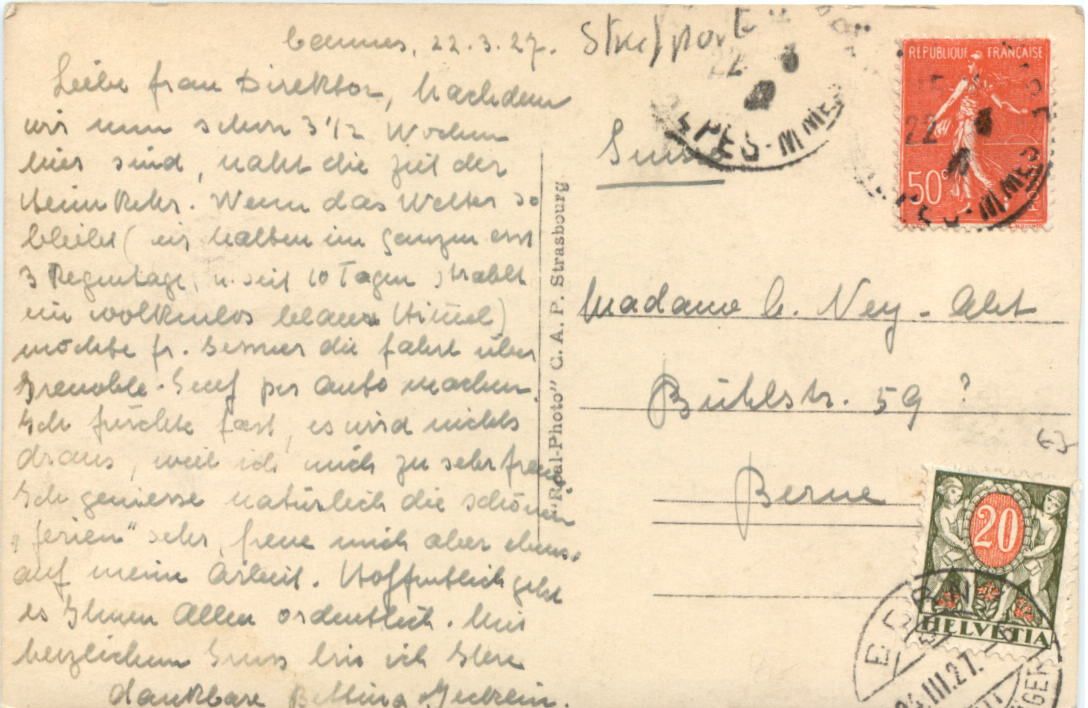 Cannes, 22.3.27.
Liebe Frau Direktor, Nachdem
wir nun schon 3 1/2 Wochen
hier sind, naht die Zeit der
Heimkehr. Wenn das Wetter so
bleibt (wir hatten im ganzen erst
3 Regentage, u. seit 10 Tagen strahlt
ein wolkenlos blauer Himmel)
möchte Fr. die Fahrt über
Grenoble-Genf per Auto machen.
Ich fürchte fast, es wird nichts
draus, weil ich mich zu sehr freue
Ich geniesse natürlich die schönen
"Ferien" sehr, freue mich aber
auf meine Arbeit. Hoffentlich geht
es Ihnen Allen ordentlich. Mit
herzlichem Gruss bin ich Ihre
dankbare Bettina
"Real-Photo" C. A. P. Strasbourg
Strafporto
Suisse
Madame
Bühlstr. 59 ?
Berne
REPUBLIQUE FRANÇAISE
50c
22
ALPES-MMES
20
HELVETIA
BERN
III.27.